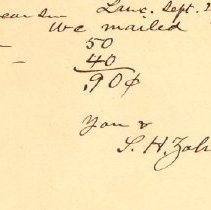 Lanc. Sept.
ear Sir
We mailed
50
40
.90¢
You
S. H. Zah